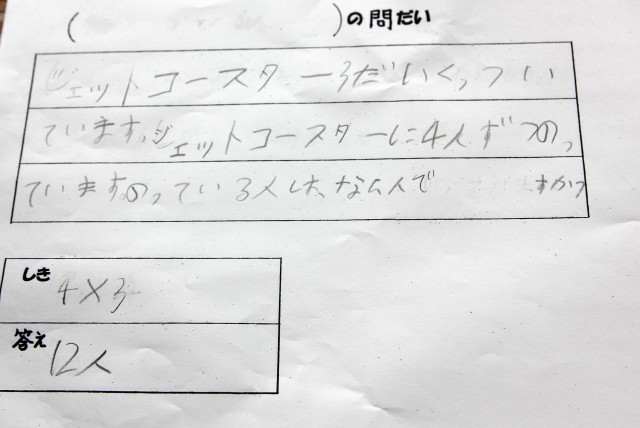 (　　　)の問だい
ジェットコースター3だいくっつい
ています。ジェットコースターに4人ずつのっ
ています。のっている人は、なん人ですかっ
しき 4×3
答え 12人